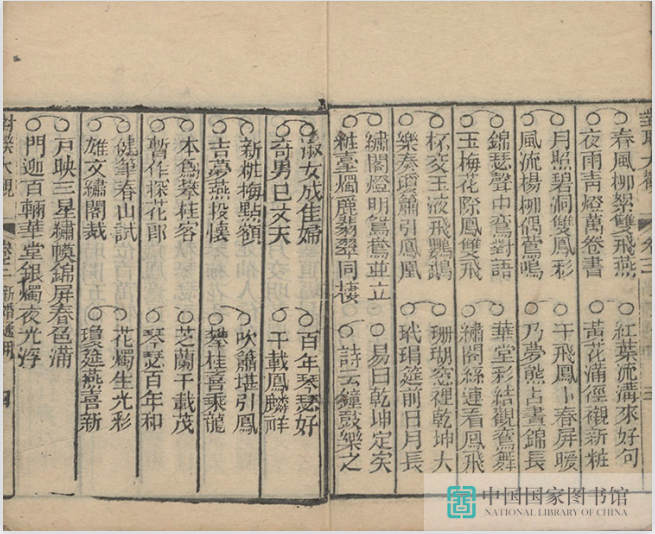 春風柳絮雙飛燕 紅葉流溝來好句
夜雨青燈萬卷書 黃花滿徑襯新粧
月照碧洞雙鳳彩 于飛鳳卜春屏暖
風流楊柳偶鶯鳴 乃夢熊占晝錦長
錦瑟聲中鸞對語 華堂彩結觀鴛舞
玉梅花際鳳雙飛 繡閣絲連看鳳飛
杯交玉液飛鸚鵡 珊瑚窓裡乾坤大
樂奏瓊簫引鳳凰 玳瑁筵前日月長
繡閣燈明鴛鴦並立 易曰乾坤定矣
粧臺燭麗翡翠同棲 詩云鐘鼓樂之
淑女成佳婦 百年琴瑟好
奇男已丈夫 千載鳳麟祥
新粧梅點額 吹簫堪引鳳
吉夢燕投懷 攀桂喜乘龍
本為攀桂客 芝蘭千載茂
暫作探花郎 琴瑟百年和
健筆春山試 花燭生光彩
雄文繡閣裁 瓊筵燕喜新
戶映三星繡幙錦屏春色滿
門迎百輛華堂銀燭夜光浮
大觀 卷三 新婚通用 四
中国国家图书馆
NATIONAL LIBRARY OF CHINA